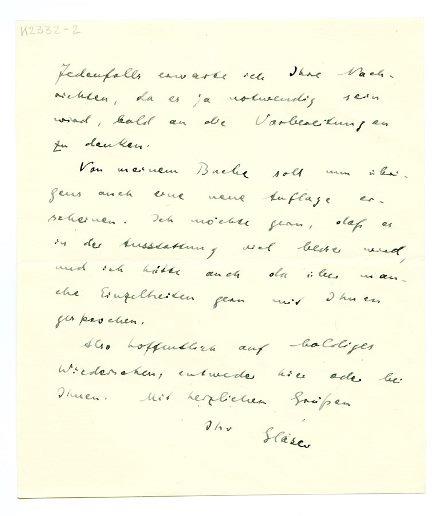 K2332-2
Jedenfalls erwarte ich Ihre Nach-
richten, da es ja notwendig sein
wird, bald an die Vorbereitungen
zu denken.
Von meinem Buche soll nun übri-
gens auch eine neue Auflage er-
scheinen. Ich möchte gern, daß es
in der Ausstattung viel besser wird,
und ich hätte auch da über man-
che Einzelheiten gern mit Ihnen
gesprochen.
Also hoffentlich auf baldiges
Wiedersehen, entweder hier oder bei
Ihnen. Mit herzlichen Grüßen
Ihr
Gläser